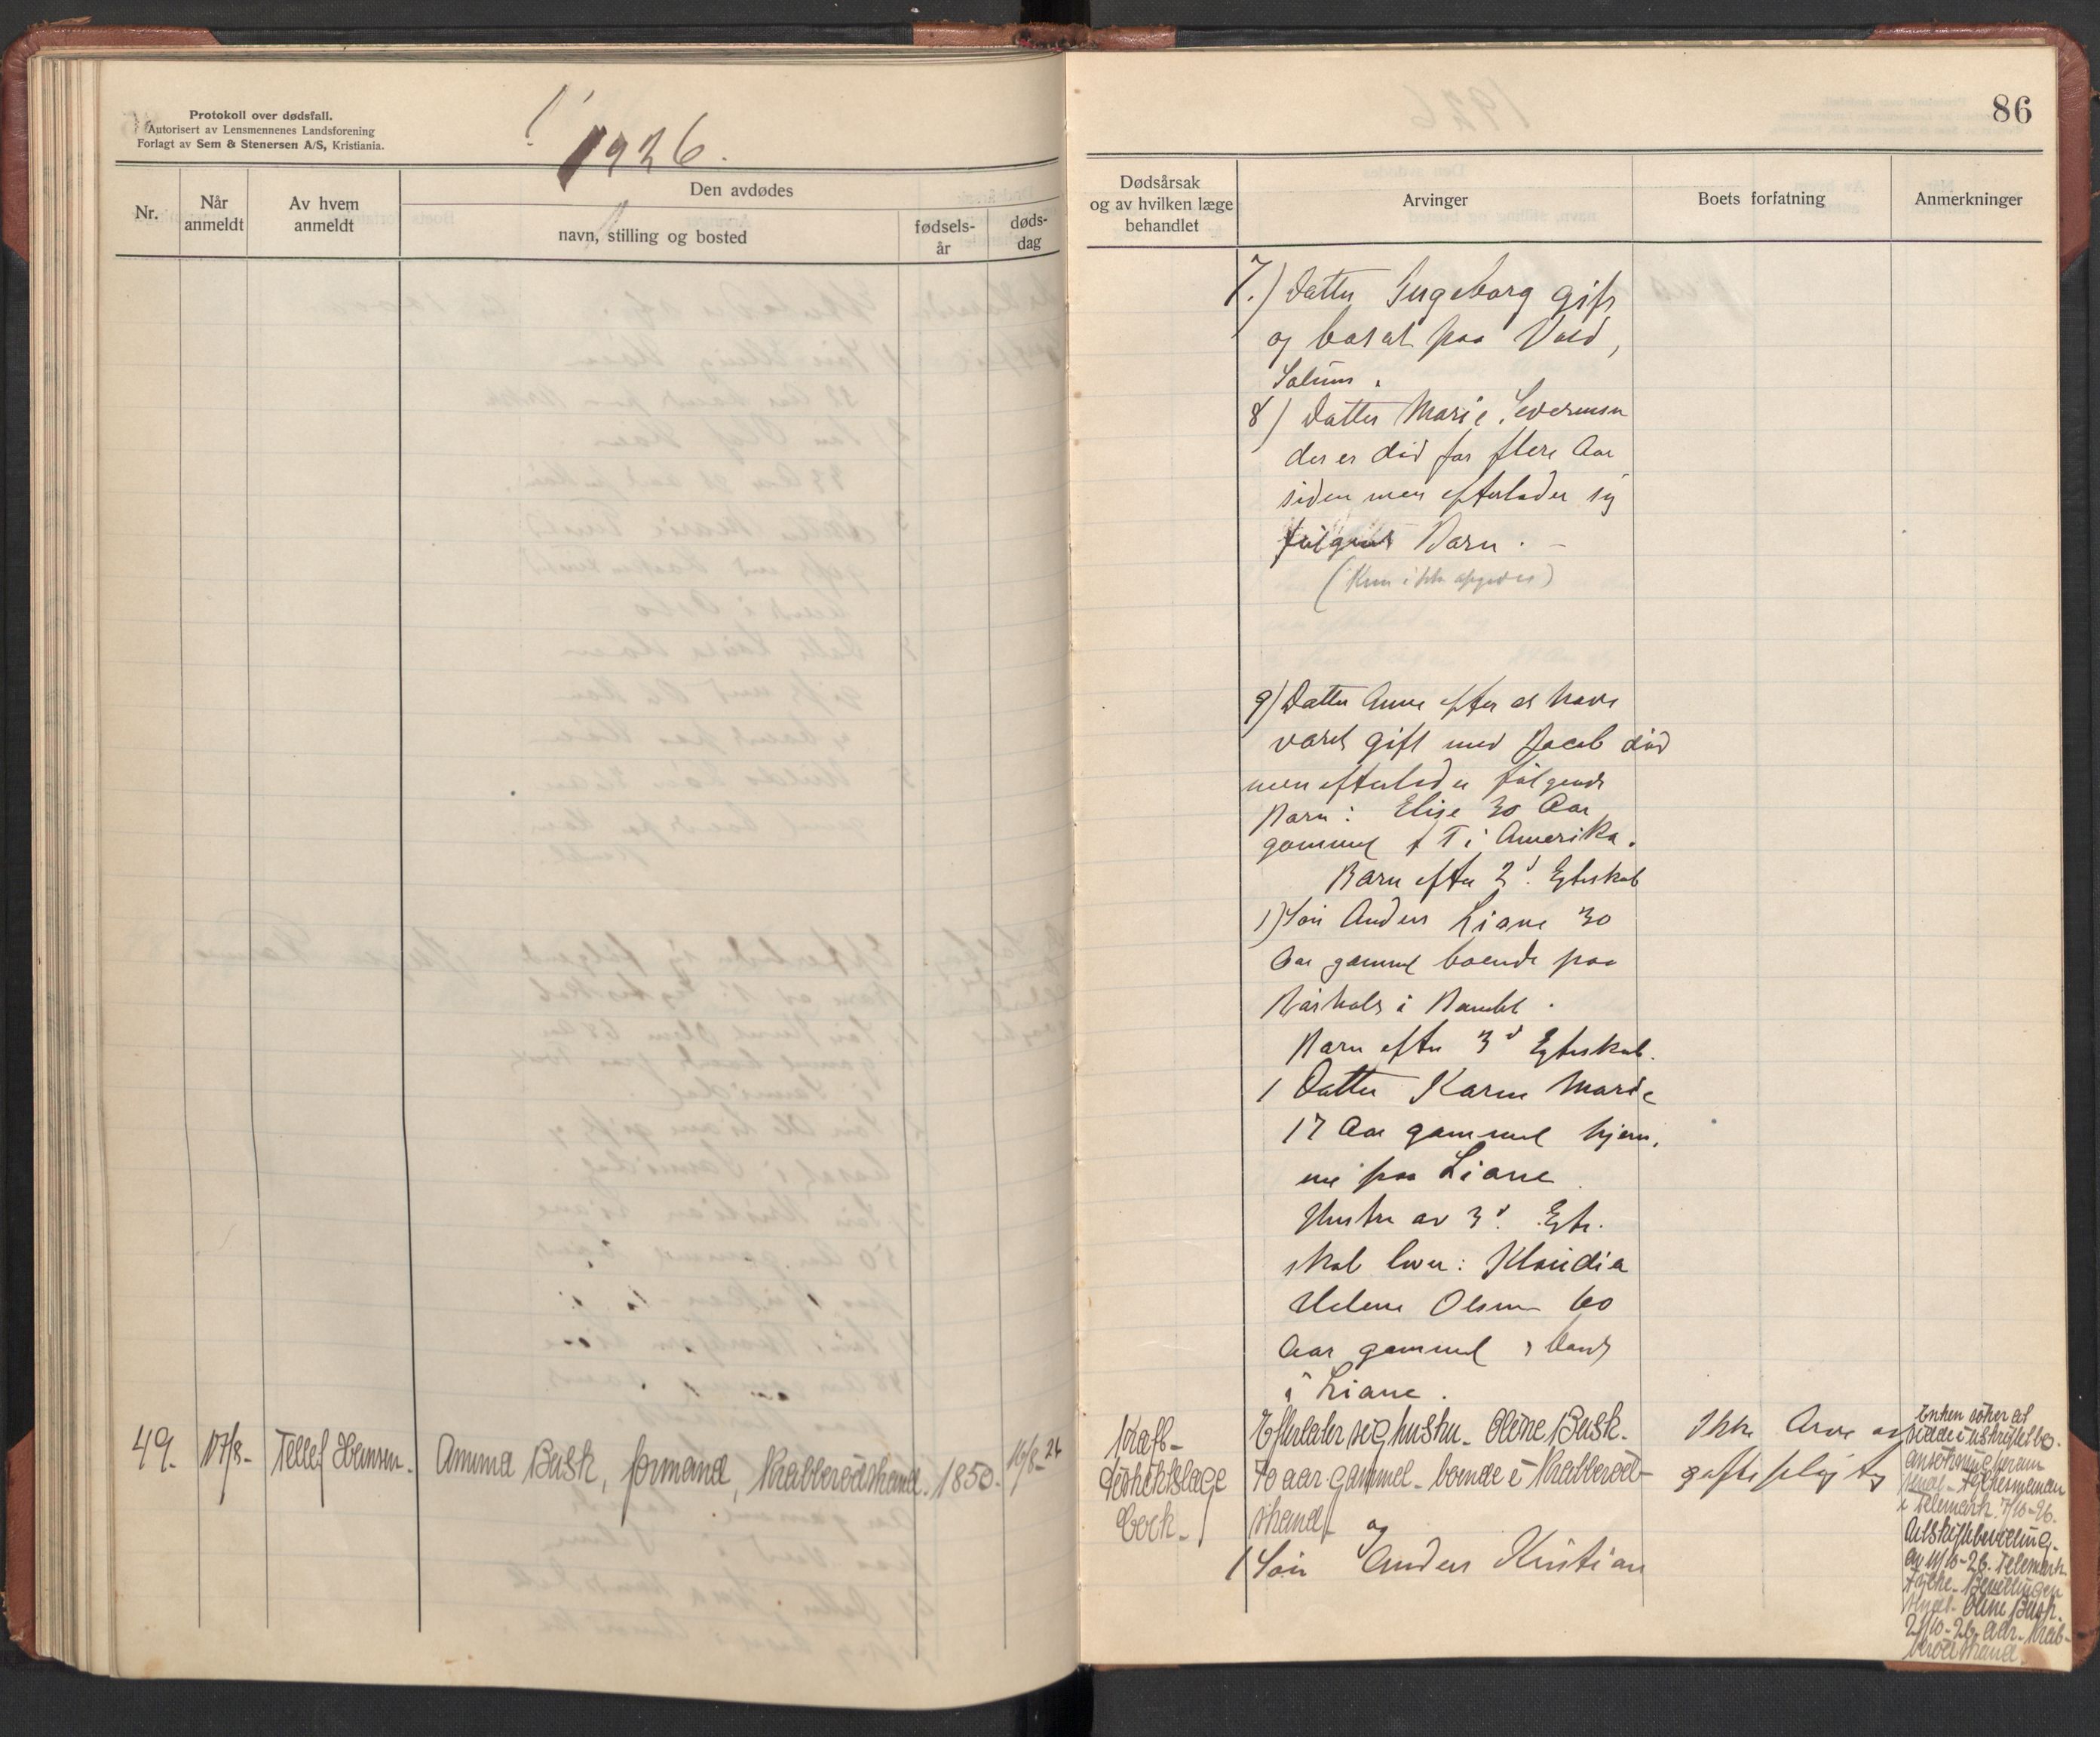 Protokoll over dødsfall.
Autorisert av Lensmennenes Landsforening
Forlagt av Sem & Stenersen A/S, Kristiania.
1926.
Nr.
Når anmeldt
Av hvem anmeldt
Den avdødes
navn, stilling og bosted
fødsels-
år
døds-
dag
49.
17/8-
Tellef Hansen.
Amund Busk, formand, Krabberødstrand.
1850.
16/8-26
86
Dødsårsak
og av hvilken læge
behandlet
Arvinger
Boets forfatning
Anmerkninger
7.) Datter Ingeborg gift
og bosat paa Vold,
Solum.
8) Datter Marie Severinsen
der er død for flere Aar
siden men efterlader sig
følgende Barn. -
(Kun ikke opgives)
9) Datter Anne efter at have
været gift med Jacob død
men efterlader følgende
Barn: Elise 30 Aar
gammel f T i Amerika.
Barn efter 2d. Egteskab
1) Søn Anders Liane 30
Aar gammel boende paa
i Bamble.
Barn efter 3d Egteskab.
1 Datter Karen Marie
17 Aar gammel hjem.
me paa Liane
Hustru av 3d. Egte.
skab lever: Klaudia
Helene Olsen 60
Aar gammel
i Liane.
Kræft-
Distriktslæge
Bock-
Efterlater sig hustru- Oline Busk-
70 aar gammel- boende i Krabberød-
strand og
1 Søn Anders Kristian
Ikke Arve av
giftspligtig
Enken søker at
sidde i uskiftet bo.
Ansøkning herom
sendt- Fylkesmanden
i Telemark. 7/10-26.
Uskiftebevilling-
av 11/10-26. Telemark
Fylke- Bevillingen
sendt- Oline Busk.
21/10-26. adr- Krab-
berødstrand.